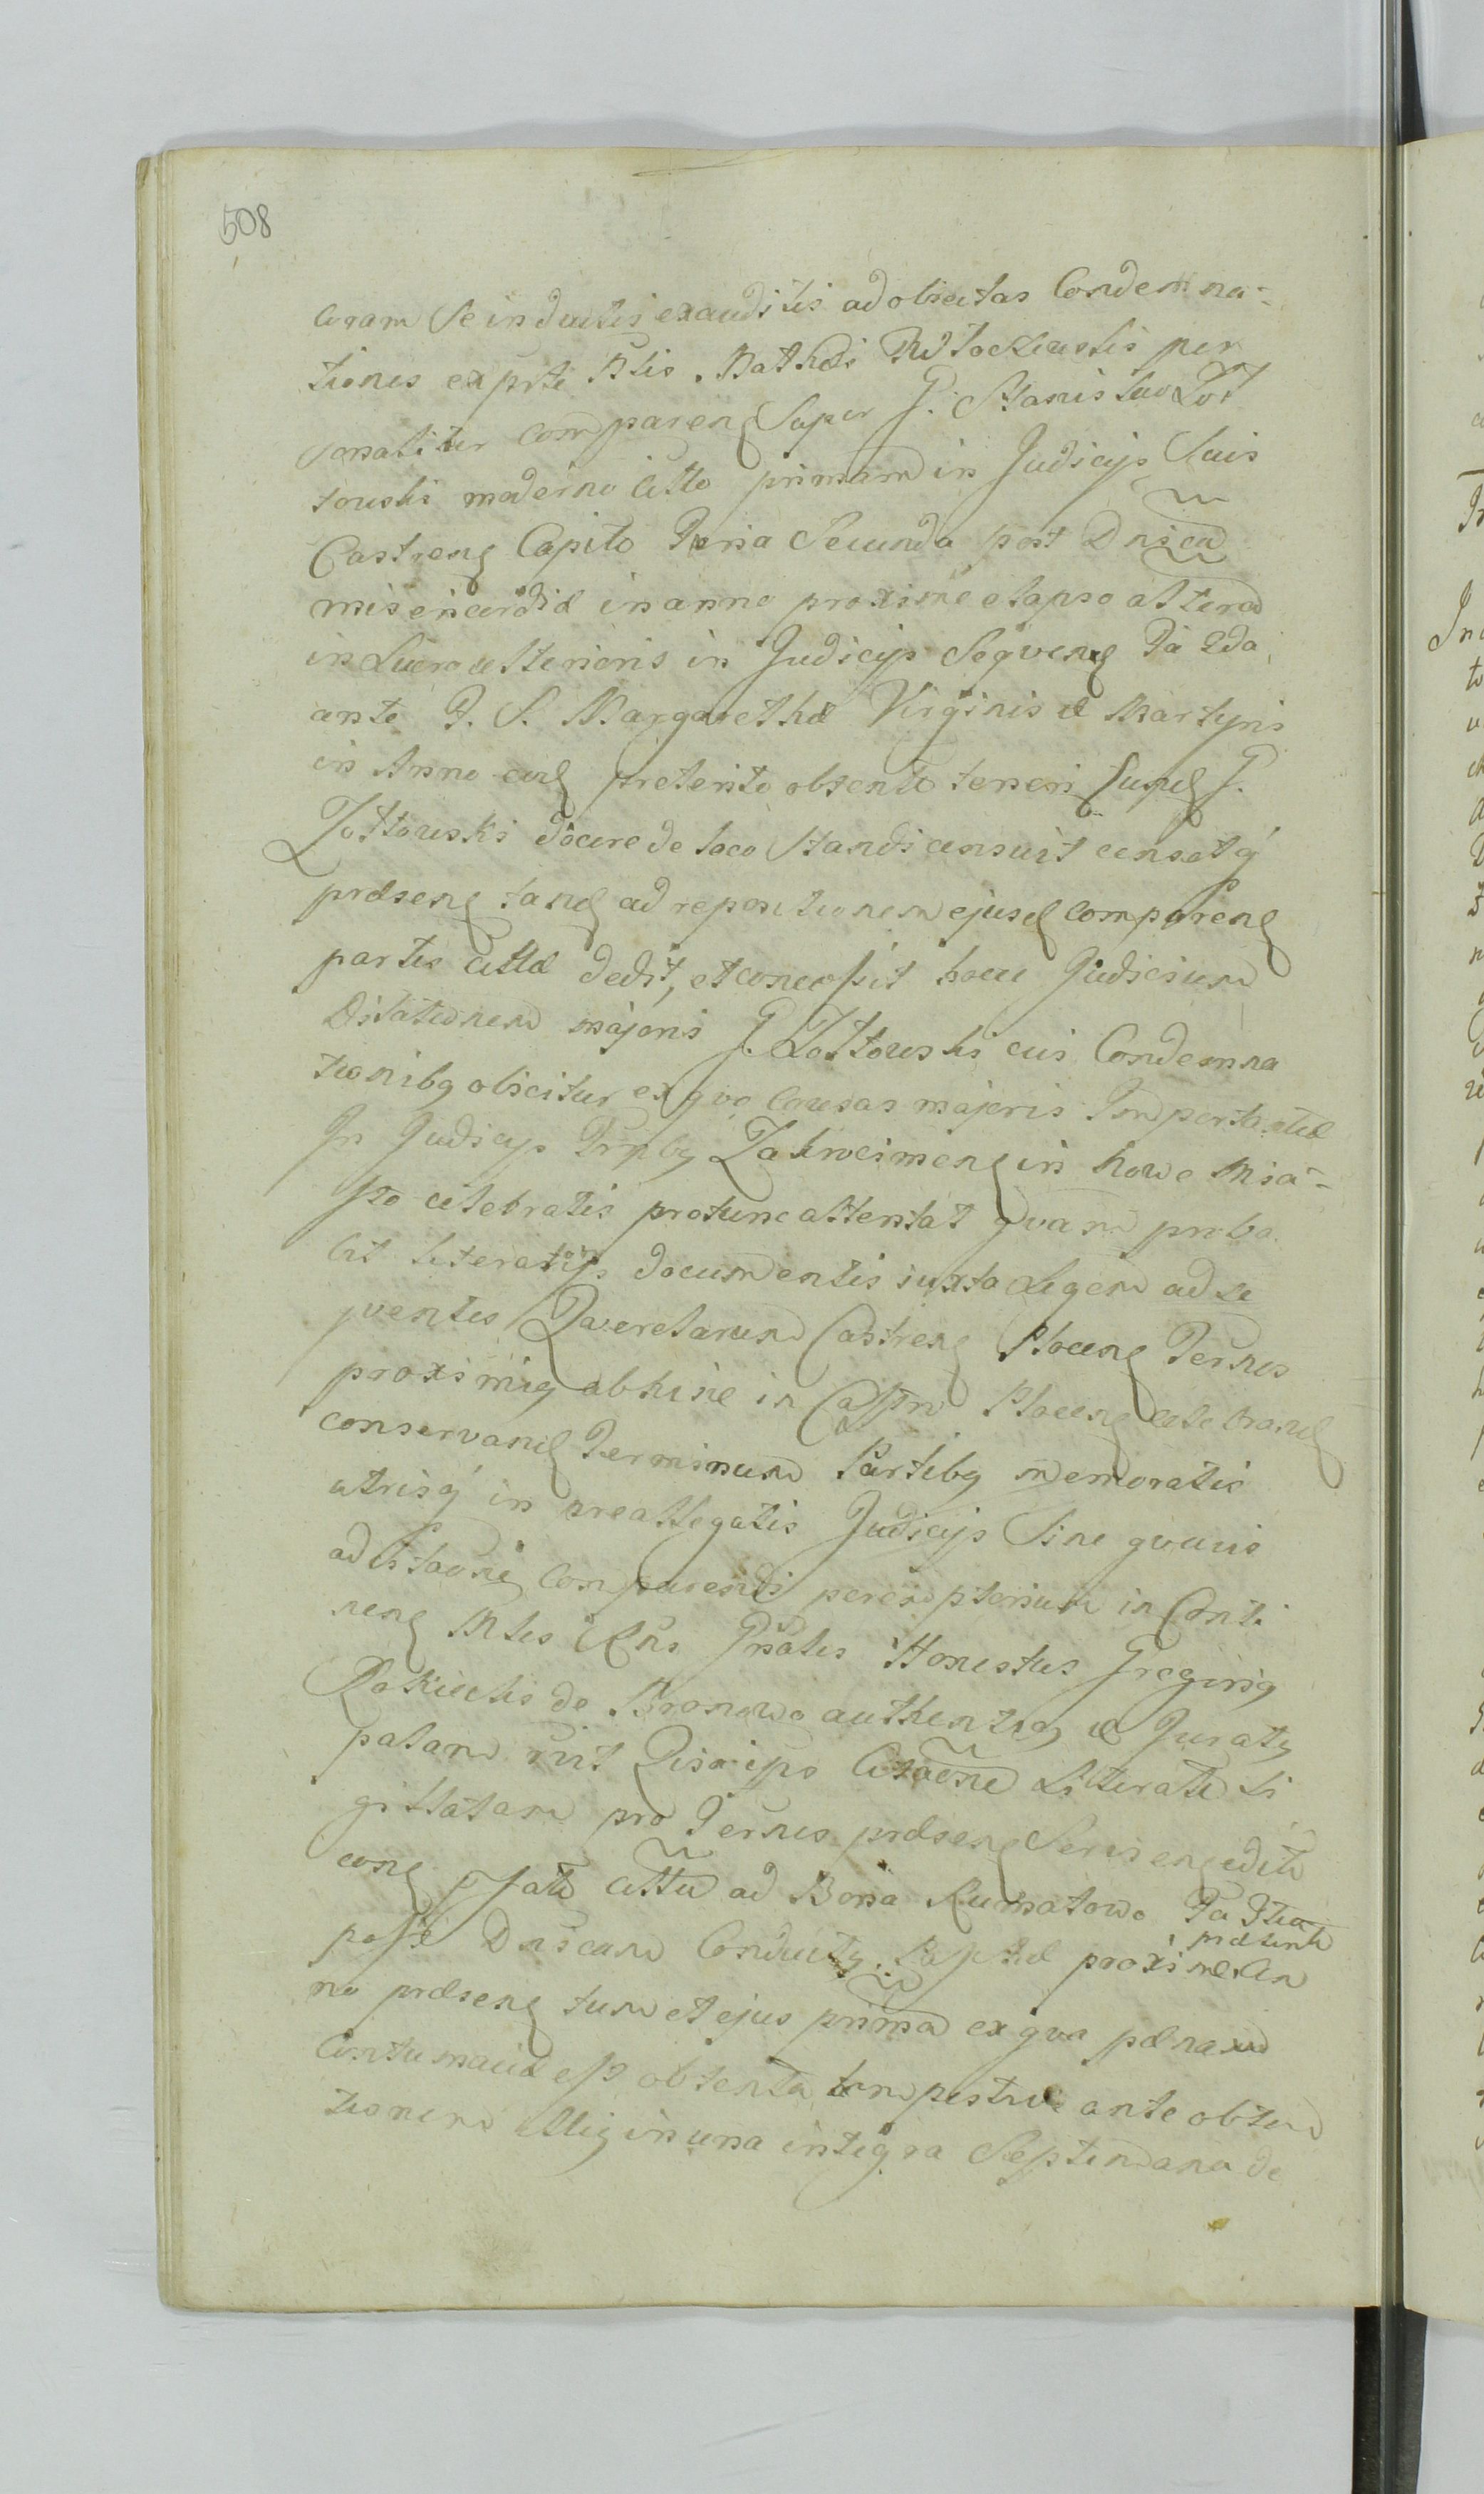 508
coram se inductis exauditis ad obiectas Condemna-
tiones ex prte Nlis Mathæi Młockowskis per
sonaliter comparen Super G. Stanislao Lot
towski moderno citto primam in Judicijs Suis
Castren Capitło Feria Secunda post Dnĩca
misericordiæ in anno proxime elapso altera
in Lucro ulterioris in Judicijs Seqven Fa 2da
ante F. S. Margarethæ Virginis et Martyris
in Anno eod preterito obtento teneri supd G.
Lottowski docere de loco Standi censuit censetq
præsen tand ad repositionem ejusd comparen
partis cittæ dedit, et concessit hocce Judicium
Dilationem majoris G. Lottowski cui Condemna
tionibq obicitur ex qvo Causas majoris Importantiæ
In Judicijs Trnlbq Zakroczimen in Nowe Mia-
sto celebratis protunc attentat qvam proba
bit literatorijs documentis iuxta Legem ad se
qventes Qverelarum Castren Plocen Termes
proximiq abhinc in Castro Plocen celebrand
conservand Terminum Partibq memoratis
utrisq in preallegatis Judicijs Sine qvavis
ad citaone Comparendi peremptorium in Conti
nen Mlis Rns Gnalis Honestus Gregoriq
Rokicki de Bronowo authenticq et Juratq
palam rcit Qsia ipse Citaone Literali Si
gillatam pro Termes præsen Seriis en edite
con Jate citte ad Bona Rumatowo Fa 3tia
post Dnicam Conductq Paschæ proxime An præterita
no præsen tum et ejus prima ex qva pæna
Contumaciæ est obtenta tempestive ante obten
tionem illiq in una integra Septimana de